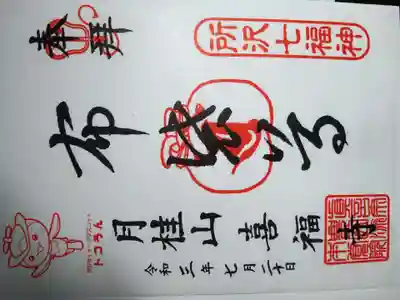 奉拝
所沢七福神
布袋尊
月桂山喜福寺
令和三年七月二十日
トコろん